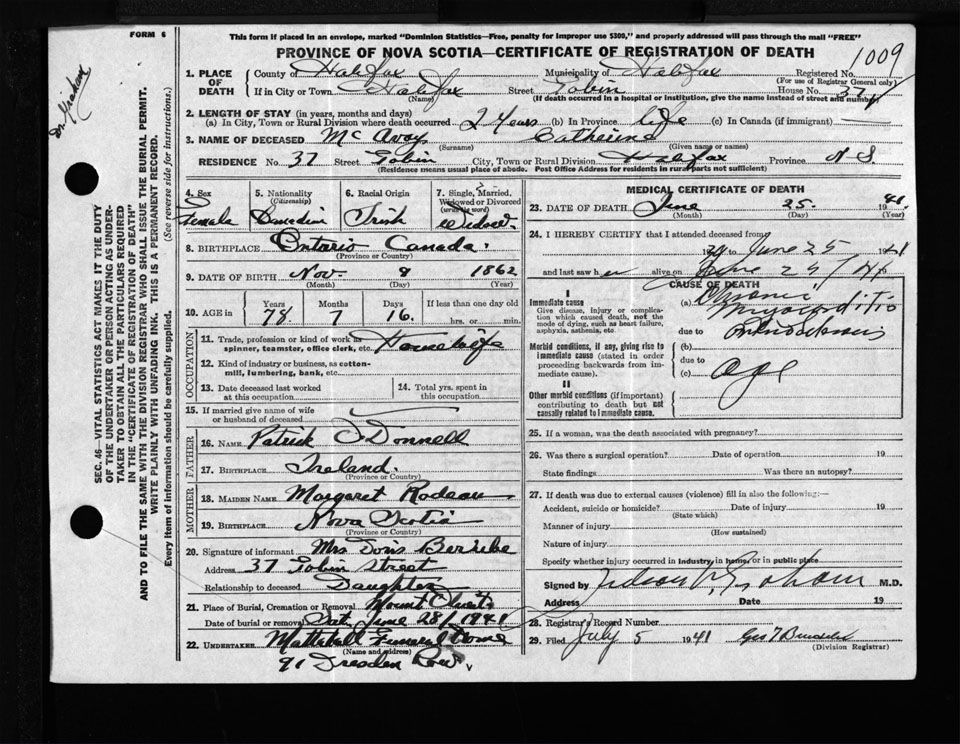 FORM 6
This form if placed in an envelope, marked "Dominion Statistics—Free, penalty for improper use $300," and properly addressed will pass through the mail "FREE"
PROVINCE OF NOVA SCOTIA—CERTIFICATE OF REGISTRATION OF DEATH
1009
Dr. Graham
SEC. 46—VITAL STATISTICS ACT MAKES IT THE DUTY
OF THE UNDERTAKER OR PERSON ACTING AS UNDER-
TAKER TO OBTAIN ALL THE PARTICULARS REQUIRED
IN THE "CERTIFICATE OF REGISTRATION OF DEATH"
AND TO FILE THE SAME WITH THE DIVISION REGISTRAR WHO SHALL ISSUE THE BURIAL PERMIT.
WRITE PLAINLY WITH UNFADING INK. THIS IS A PERMANENT RECORD.
Every item of information should be carefully supplied. (See reverse side for instructions.)
1. PLACE OF DEATH County of Halifax Municipality of Halifax Registered No.
(For use of Registrar General only)
If in City or Town Halifax Street Tobin House No. 37
(Name) (If death occurred in a hospital or institution, give the name instead of street and number)
2. LENGTH OF STAY (in years, months and days)
(a) In City, Town or Rural Division where death occurred 2 Years (b) In Province life (c) In Canada (if immigrant)
3. NAME OF DECEASED McAvoy Catherine
(Surname) (Given name or names)
RESIDENCE No. 37 Street Tobin City, Town or Rural Division Halifax Province N S
(Residence means usual place of abode. Post Office Address for residents in rural parts not sufficient)
4. Sex Female
5. Nationality (Citizenship) Canadian
6. Racial Origin Irish
7. Single, Married, Widowed or Divorced (write the word) Widow
8. BIRTHPLACE Ontario Canada.
(Province or Country)
9. DATE OF BIRTH Nov. 9 1862
(Month) (Day) (Year)
10. AGE in Years 78 Months 7 Days 16 If less than one day old
hrs. or min.
OCCUPATION
11. Trade, profession or kind of work as spinner, teamster, office clerk, etc. Housewife
12. Kind of industry or business, as cotton-mill, lumbering, bank, etc.
13. Date deceased last worked at this occupation
14. Total yrs. spent in this occupation
15. If married give name of wife or husband of deceased
FATHER
16. NAME Patrick O'Donnell
17. BIRTHPLACE Ireland.
(Province or Country)
MOTHER
18. MAIDEN NAME Margaret
19. BIRTHPLACE Nova Scotia
(Province or Country)
20. Signature of informant Mrs Doris Berube
Address 37 Tobin Street
Relationship to deceased Daughter
21. Place of Burial, Cremation or Removal Mount Olivet
Date of burial or removal Sat. June 28/1941
22. UNDERTAKER Funeral Home
(Name and address)
91 Dresden Row
MEDICAL CERTIFICATE OF DEATH
23. DATE OF DEATH June 25. 1941
(Month) (Day) (Year)
24. I HEREBY CERTIFY that I attended deceased from
to June 25 1941
and last saw her alive on June 25/41
CAUSE OF DEATH
I
Immediate cause
Give disease, injury or complication which caused death, not the mode of dying, such as heart failure, asphyxia, asthenia, etc.
(a) Chronic Myocarditis
due to
Morbid conditions, if any, giving rise to immediate cause (stated in order proceeding backwards from immediate cause).
(b)
due to
(c) age
II
Other morbid conditions (if important) contributing to death but not causally related to immediate cause.
25. If a woman, was the death associated with pregnancy?
26. Was there a surgical operation? Date of operation 19
State findings Was there an autopsy?
27. If death was due to external causes (violence) fill in also the following:—
Accident, suicide or homicide? Date of injury 19
(State which)
Manner of injury
(How sustained)
Nature of injury
Specify whether injury occurred in industry, in home, or in public place
Signed by Judson V. Graham M.D.
Address Date 19
28. Registrar's Record Number
29. Filed July 5 1941
(Division Registrar)